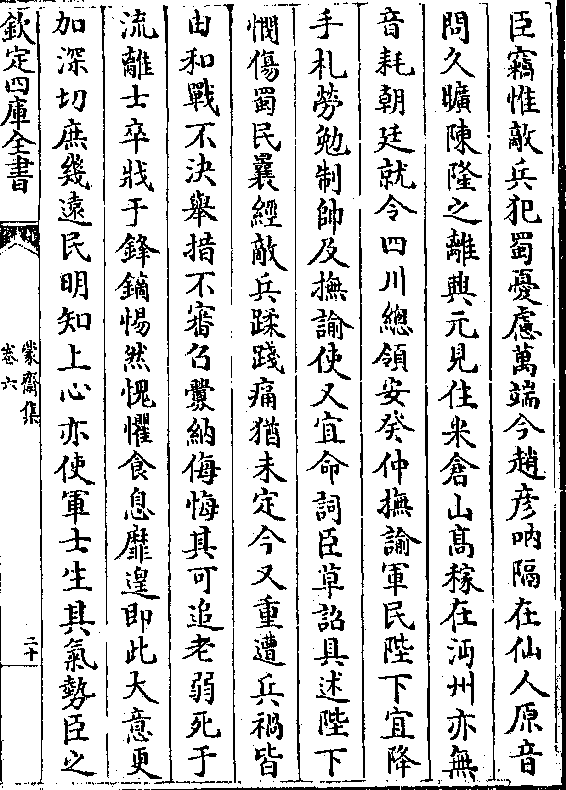 臣竊惟敵兵犯蜀憂慮萬端今趙彦呐隔在仙人原音
問久曠陳隆之離興元見住米倉山髙稼在沔州亦無
音耗朝廷就令四川總領安癸仲撫諭軍民陛下宜降
手札勞勉制帥及撫諭使又宜命詞臣草詔具述陛下
憫傷蜀民曩經敵兵蹂踐痛猶未定今又重遭兵禍皆
由和戰不決舉措不審召釁納侮悔其可追老弱死于
流離士卒戕于鋒鏑惕然愧懼食息靡遑即此大意更
加深切庶幾遠民明知上心亦使軍士生其氣勢臣之
欽定四庫全書
蒙齋集
卷六
二十